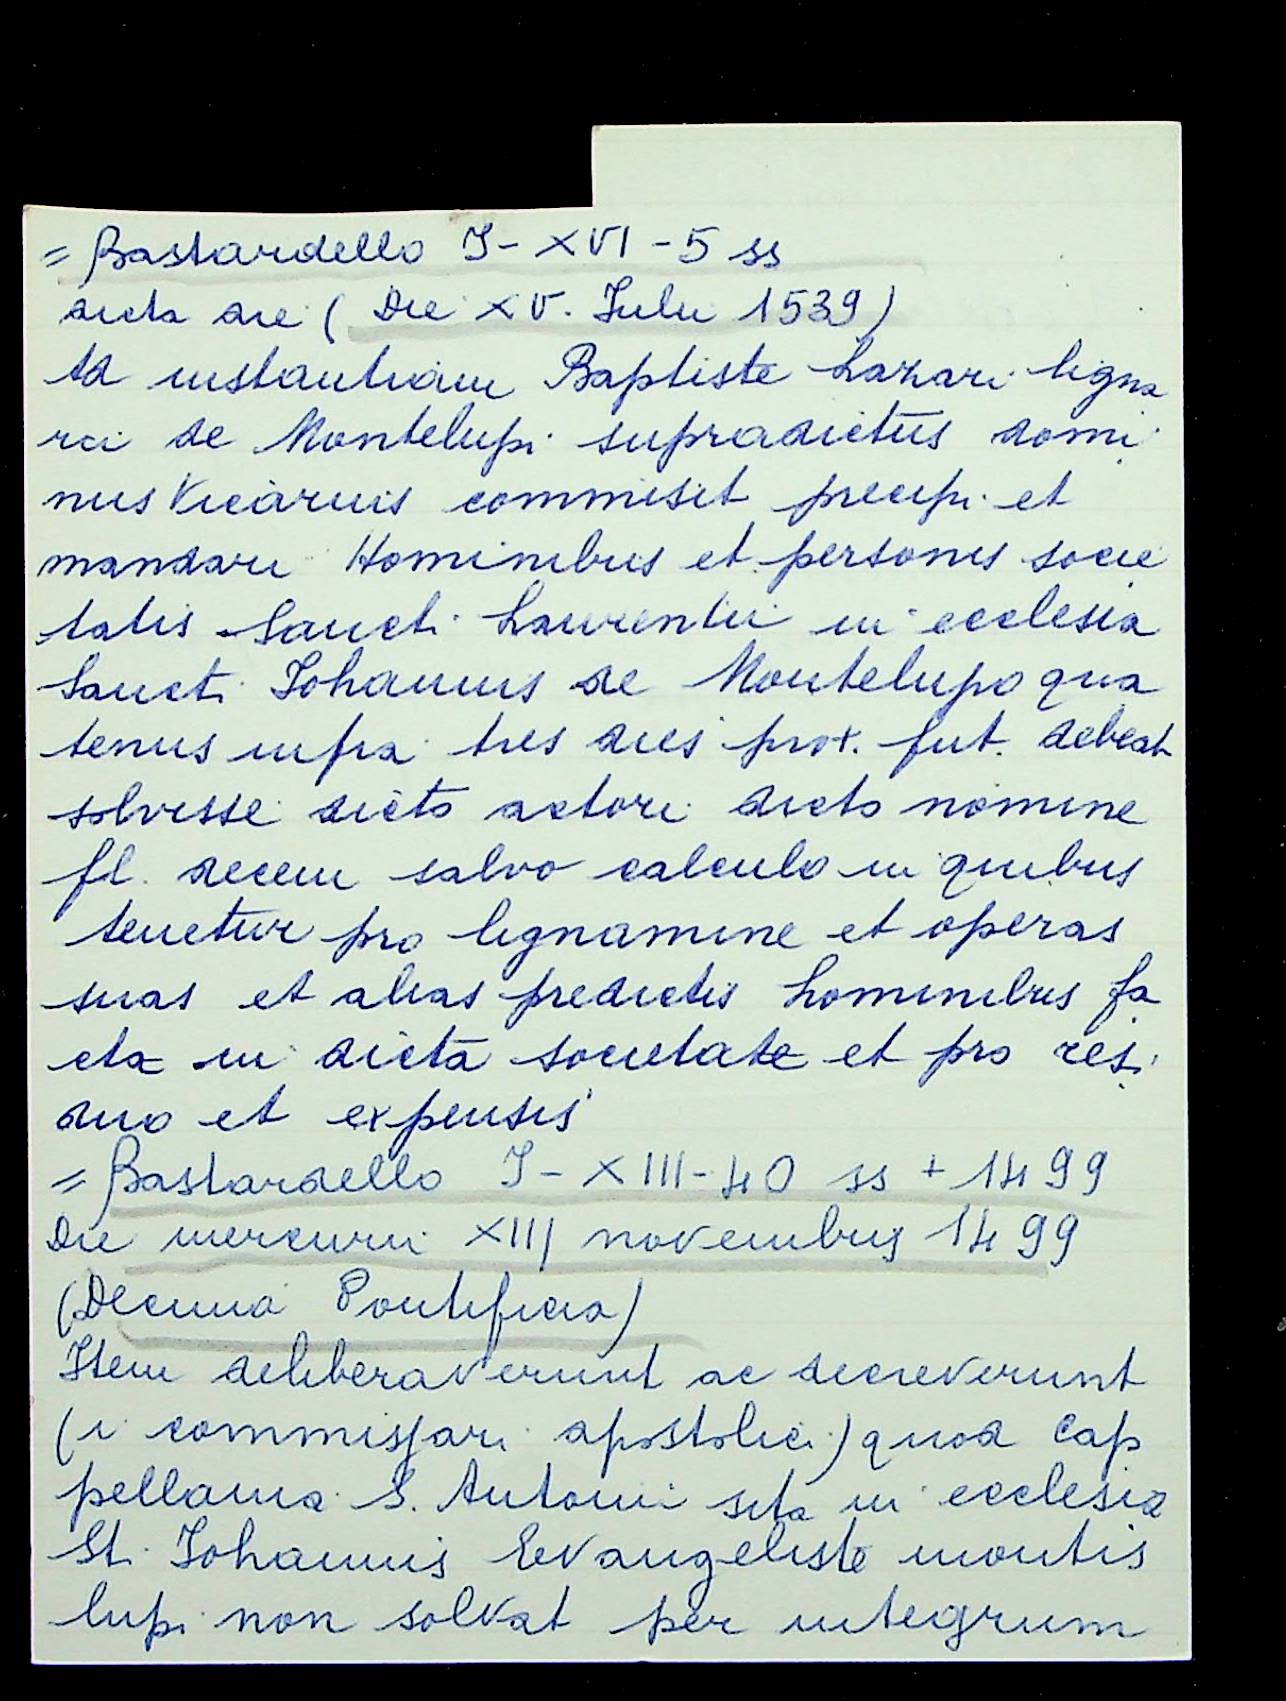 = Bastardello I - XVI - 5 ss
dicta die ( Die XV. Iulii 1539)
Ad instantiam Baptiste Lazari ligna
rii de Montelupi supradictus domi
nus Vicarius commisit precipi et
mandari Hominibus et personis socie
tatis Sancti Laurentii in ecclesia
Sancti Iohannis de Montelupo qua
tenus infra tres dies prox. fut. debeat
solvisse dicto actori dicto nomine
fl. decem salvo calculo in quibus
tenetur pro lignamine et operas
suas et alias predictis hominibus fa
cta in dicta societate et pro resi
duo et expensis
= Bastardello I - XIII - 40 ss + 1499
Die mercurii XIII novembris 1499
(Decima Pontificia)
Item deliberaverunt ac decreverunt
(i commissari apostolici) quod Cap
pellania S. Antonii sita in ecclesia
St. Iohannis Evangeliste montis
lupi non solvat per integrum